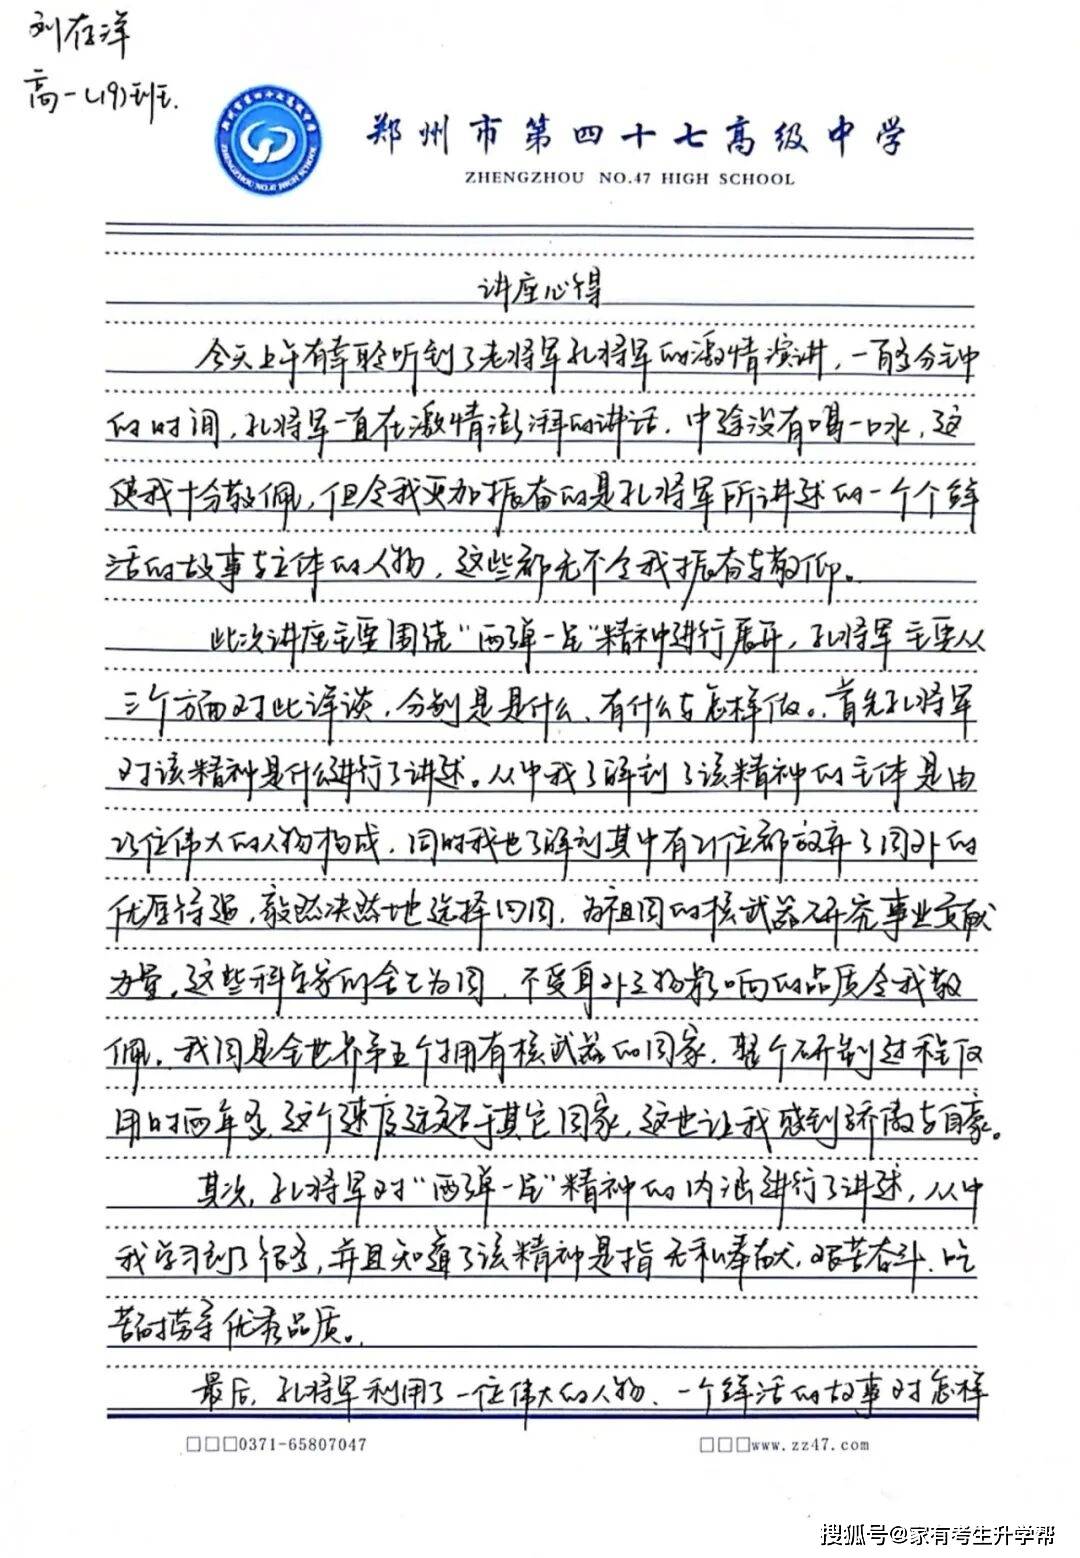 刘存洋
高一(19)班.
郑州市第四十七高级中学
ZHENGZHOU NO.47 HIGH SCHOOL
ZHENGZHOU NO.47 HIGH SCHOOL
讲座心得
今天上午有幸聆听到了老将军孔将军的激情演讲,一百多分钟
的时间,孔将军一直在激情澎湃的讲话,中途没有喝一口水,这
使我十分敬佩,但令我更加振奋的是孔将军所讲述的一个个鲜
活的故事与立体的人物,这些都无不令我振奋与敬仰。
此次讲座主要围绕“两弹一星”精神进行展开,孔将军主要从
三个方面对此详谈,分别是是什么、有什么与怎样做。首先孔将军
对该精神是什么进行了讲述。从中我了解到了该精神的主体是由
23位伟大的人物构成,同时我也了解到其中有21位都放弃了国外的
优厚待遇,毅然决然地选择回国,为祖国的核武器研究事业贡献
力量,这些科学家的舍己为国、不受身外之物影响的品质令我敬
佩。我国是全世界第五个拥有核武器的国家,整个研制过程仅
用时两年多,这个速度远超于其它国家,这也让我感到骄傲与自豪。
其次,孔将军对“两弹一星”精神的内涵进行了讲述,从中
我学习到了很多,并且知道了该精神是指无私奉献,艰苦奋斗、吃
苦耐劳等优秀品质。
最后,孔将军利用了一位伟大的人物、一个鲜活的故事对怎样
□□□0371-65807047
□□□www.zz47.com
搜狐号@家有考生升学帮